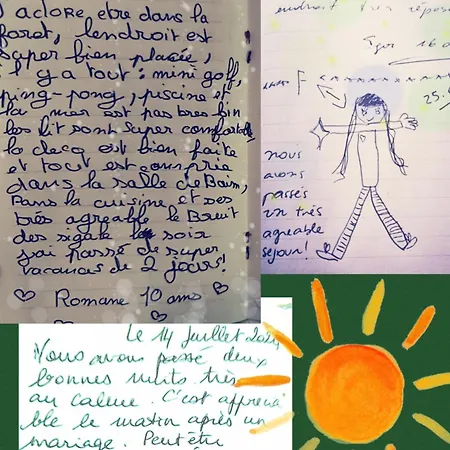 adore etre dans la
foret, lendroit est
super bien placée,
il y a tout : mini golf,
ping-pong, piscine et
la mer est pas tres loin
les lit sont super comfortable
la decq est bien faite
et tout est comprie
dans la salle de Baim,
Dans la cuisine et ses
très agreable le Bruit
des sigale le soir
j'ai passé de super
vacances de 2 jours!
Romane 10 ans
endroit très repose
Igor 16 a
25.
F
nous
avons
passés
un très
agreable
sejour!
Le 14 Juillet 2024
Nous avons passé deux
bonnes nuits très
au calme. C'est apprécia
ble le matin après un
mariage. Peut être